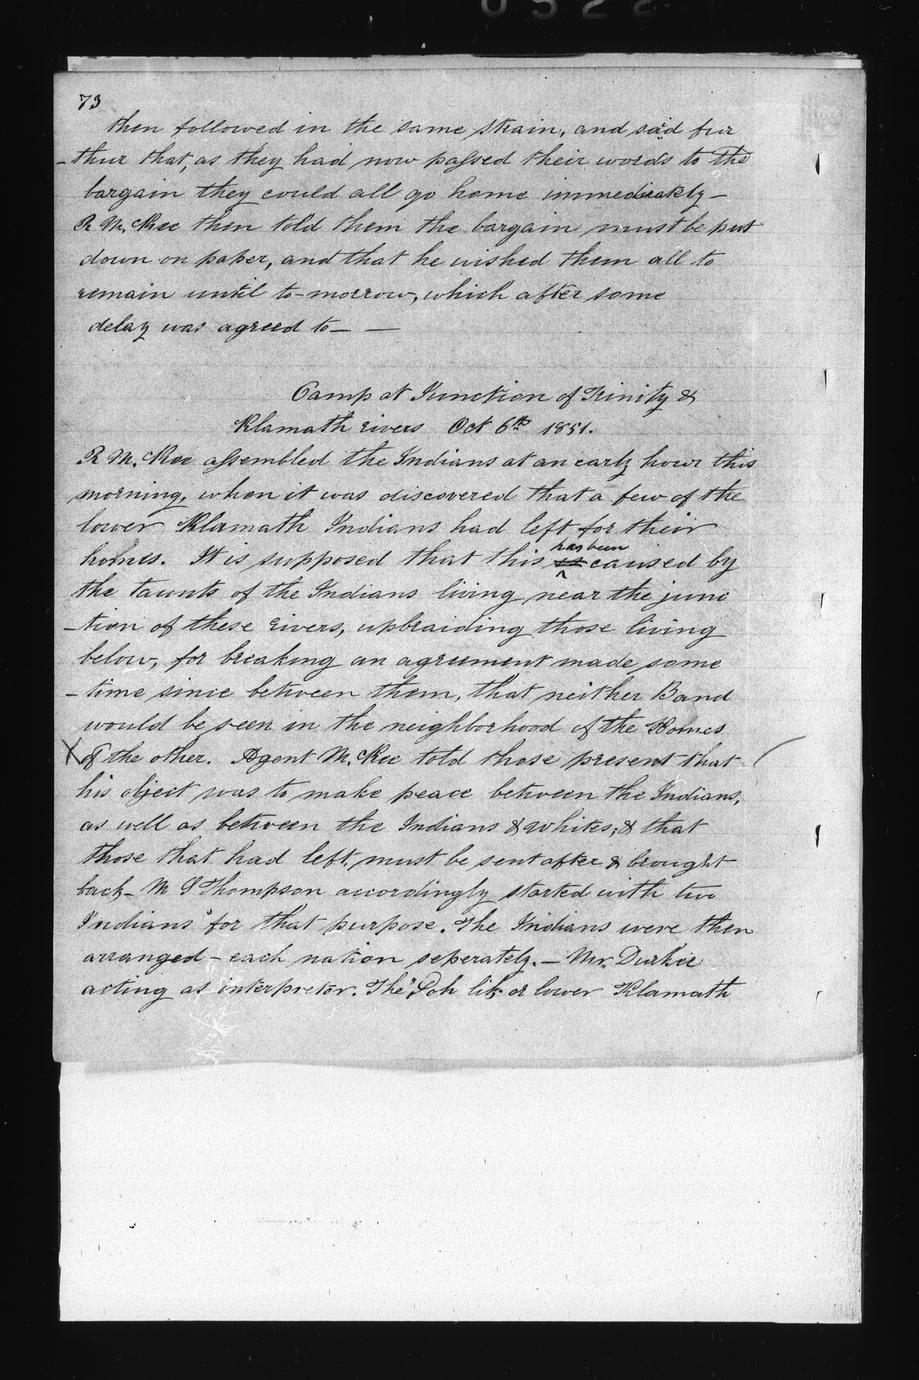 0522
73
then followed in the same strain, and said fur
-thur that, as they had now passed their words to the
bargain they could all go home immediately -
R McKee then told them the bargain must be put
down on paper, and that he wished them all to
remain until to-morrow, which after some
delay was agreed to — —
Camp at Junction of Trinity &
Klamath rivers Oct 6th 1851.
R McKee assembled the Indians at an early hour this
morning, when it was discovered that a few of the
lower Klamath Indians had left for their
has been
homes. It is supposed that this is caused by
the taunts of the Indians living near the junc
-tion of these rivers, upbraiding those living
below, for breaking an agreement made some
-time since between them, that neither Band
would be seen in the neighborhood of the Homes
X of the other. Agent McKee told those present that
his object was to make peace between the Indians,
as well as between the Indians & whites; & that
those that had left, must be sent after & brought
back - M G Thompson accordingly started with two
"Indians" for that purpose. The Indians were then
arranged - each nation seperately. — Mr. Durkee
acting as interpretor. The "Poh lik or lower Klamath